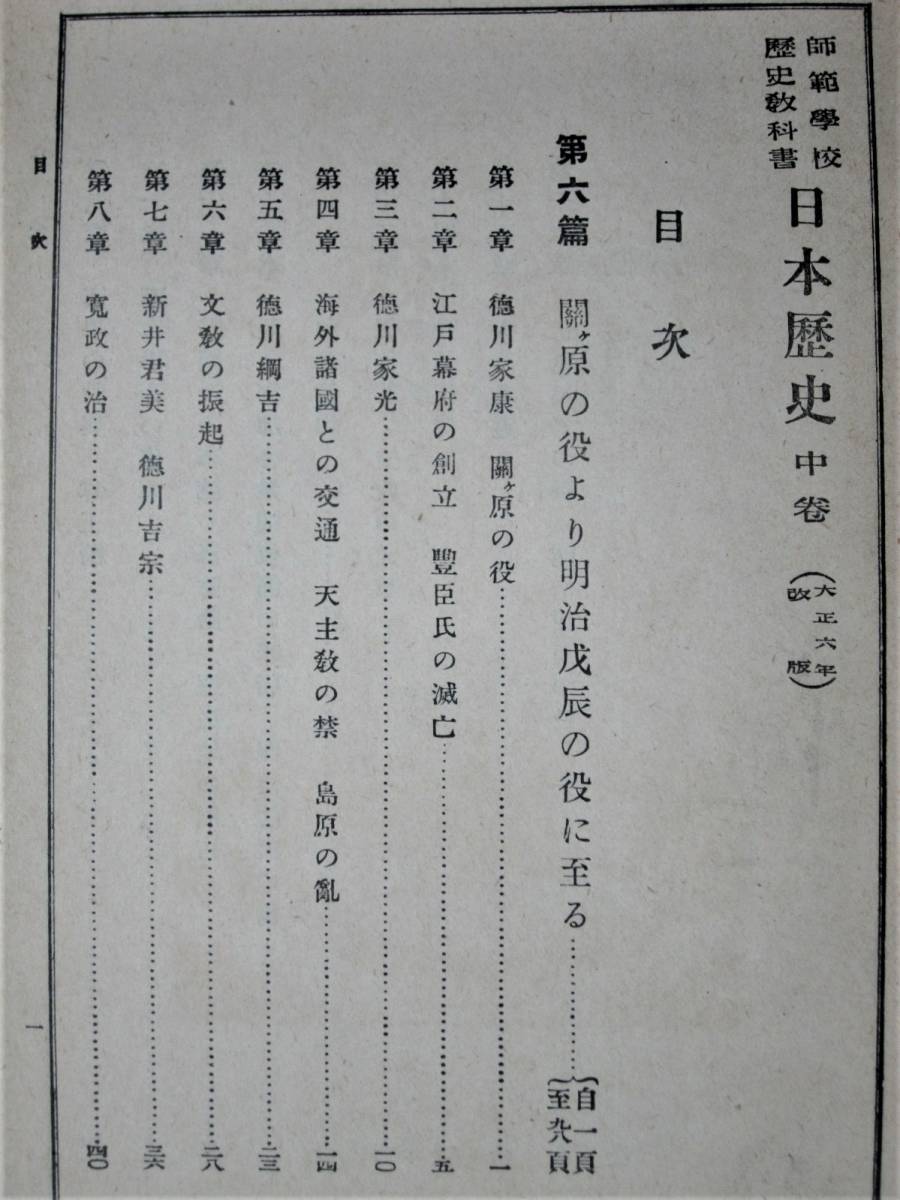 師範學校
歷史教科書
日本歷史 中卷 （大正六年改版）
目次
第六篇 關ヶ原の役より明治戊辰の役に至る……………{自一頁 至九八頁
第一章 德川家康 關ヶ原の役……………一
第二章 江戶幕府の創立 豐臣氏の滅亡……………五
第三章 德川家光……………一〇
第四章 海外諸國との交通 天主敎の禁 島原の亂……………一四
第五章 德川綱吉……………二三
第六章 文敎の振起……………二八
第七章 新井君美 德川吉宗……………三六
第八章 寬政の治……………四〇
目次
一